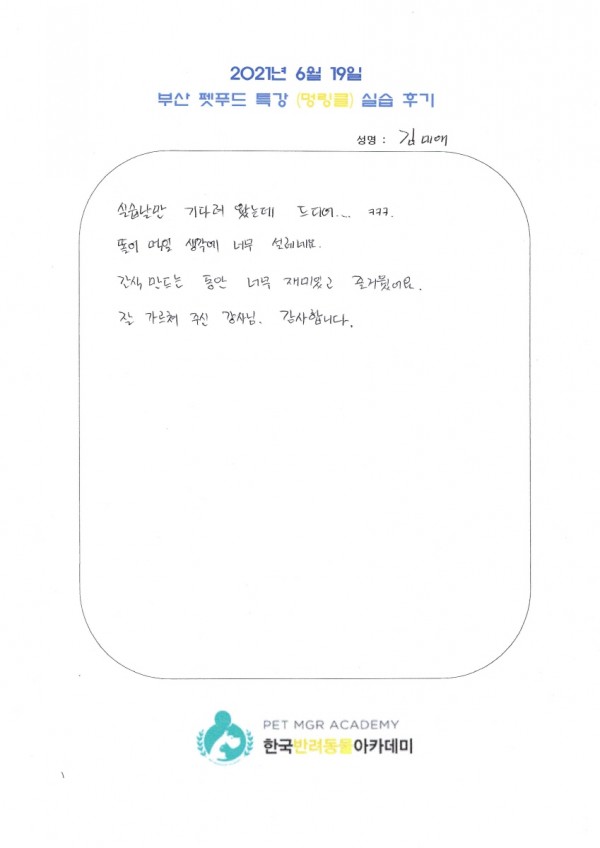 2021년 6월 19일
부산 펫푸드 특강 (멍링클) 실습 후기
성명 : 김미애
실습날만 기다려 왔는데 드디어... ㅋㅋㅋ.
똘이 먹일 생각에 너무 설레네요.
간식 만드는 동안 너무 재미있고 즐거웠어요.
잘 가르쳐 주신 강사님. 감사합니다.
PET MGR ACADEMY
한국반려동물아카데미